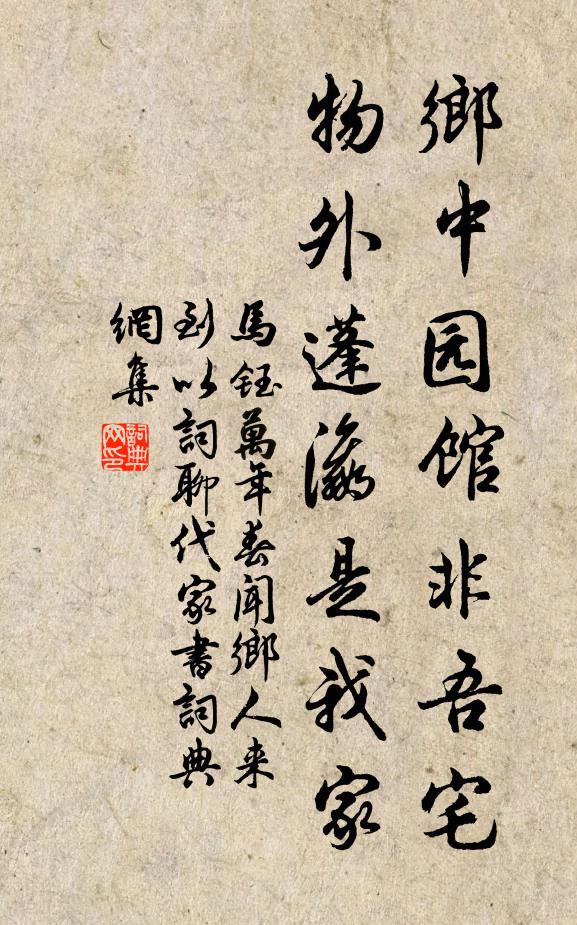 鄉中园館非吾宅
物外蓬瀛是我家
馬鈺萬年春聞鄉人来
到以詞聊代家書詞典
網集
詞典
网印